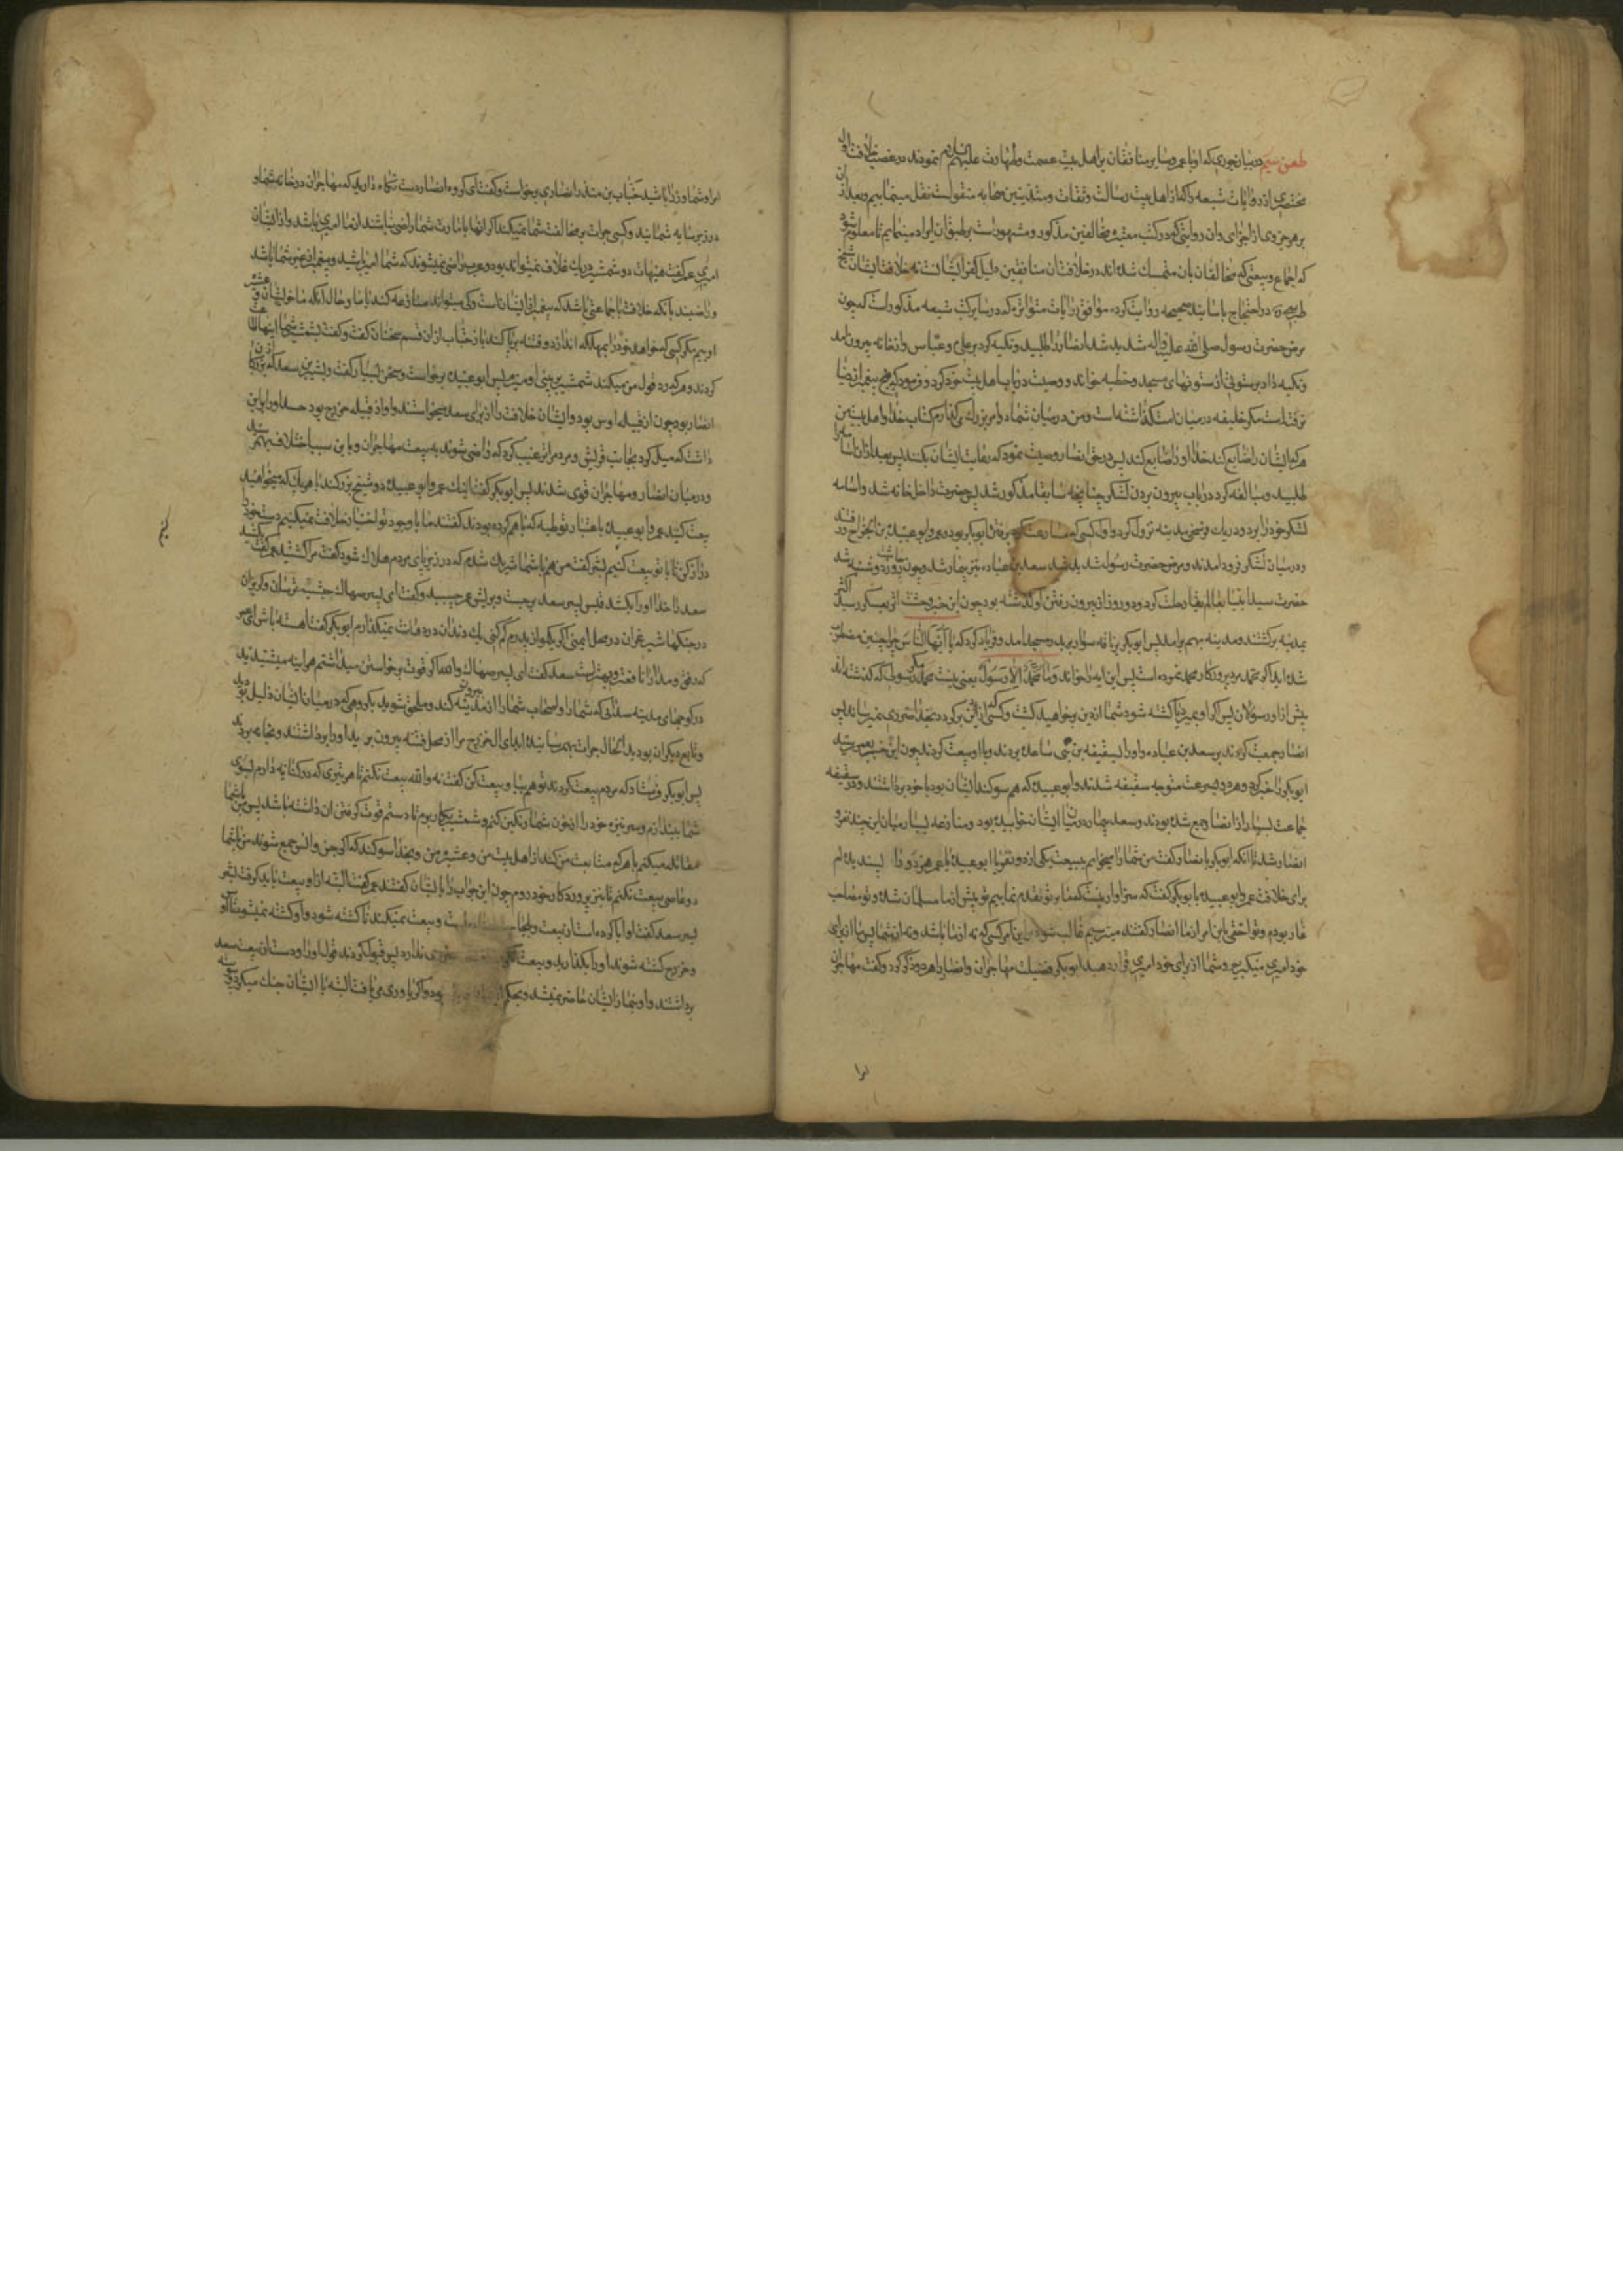 طعن سیم در بیان جوری که او با عمر و سایر منافقان بر اهل بیت عصمت و طهارت علیهم السلام نمودند در غصب خلافت اول
مختصری از روایات شیعه را که از اهل بیت رسالت و ثقات و متدینین صحابه منقولست نقل مینمائیم و بعد از ان
بر هر جزوی از اجزای ان روایتی که در کتب معتبره مخالفین مذکور و مشهور است بر طبق ان ایراد مینمایم تا معلوم شود
که اجماع و بیعتی که مخالفان بان متمسک شده اند در خلافت ان منافقین دلیل کفر ایشانست نه خلافت ایشان شیخ
طبرسی ره در احتجاج باسانید صحیحه روایت کرده موافق روایات متواتره که در سایر کتب شیعه مذکور است که چون
مرض حضرت رسول صلی الله علیه و اله شدید شد انصار را طلبید و تکیه کرد بر علی ع و عباس و از خانه بیرون امد
و تکیه داد بر ستونی از ستونهای مسجد و خطبه خواند و وصیت در باب اهل بیت خود کرد و فرمود که هیچ پیغمبر از دنیا
نرفته است مگر خلیفه در میان امت گذاشته است و من در میان شما دو امر بزرگ میگذارم کتاب خدا و اهل بیت من
هر که ایشان را ضایع کند خدا او را ضایع کند پس در حق انصار وصیت نمود که رعایت ایشان بکنند پس بعد از ان اسامه را
طلبید و مبالغه کرد در باب بیرون بردن لشکر چنانچه سابقا مذکور شد پس حضرت داخل خانه شد و اسامه
لشکر خود را برد و در یک فرسخی مدینه نزول کرد و اول کسی که مسارعت کرد برفتن ابوبکر بود و عمر و ابو عبیده بن الجراح رفتند
و در میان لشکر فرود امدند و مرض حضرت رسول شدید شد سعد بن عباده نیز بیمار شد و چون چاشت روز دوشنبه شد
حضرت سید انبیا بعالم بقا رحلت کرد و دو روز از بیرون رفتن او گذشته بود چون این خبر وحشت اثر بعسکر رسید اکثر
بمدینه برگشتند و مدینه بهم برامد پس ابوبکر بر ناقه سوار بدر مسجد امد و فریاد کرد که یا ایها الناس چرا چنین مضطرب
شده اید اگر محمد مرد پروردگار محمد نمرده است پس این ایه را خواند وما محمد الا رسول یعنی نیست محمد مگر رسولی که گذشته اند
پیش از او رسولان پس اگر او بمیرد یا کشته شود شما از دین برخواهید گشت و کسی که از دین برگردد بخدا ضرری نمیرساند پس
انصار جمعیت کردند بر سعد بن عباده و او را بسقیفه بنی ساعده بردند و با او بیعت کردند چون این خبر بعمر رسید
ابوبکر را خبر کرد و هر دو بسرعت متوجه سقیفه شدند و ابو عبیده که هم سوگند ایشان بود با خود برداشتند و در سقیفه
جماعت بسیار از انصار جمع شده بودند و سعد بیمار در میان ایشان خوابیده بود و منازعه بسیار میان این چند نفر و
انصار شد تا انکه ابوبکر بانصار گفت من شما را میخوانم ببیعت یکی از دو نفر یا ابو عبیده یا عمر هر دو را پسندیده ام
برای خلافت عمر و ابو عبیده با ابوبکر گفتند که سزاوار نیست که ما بر تو تقدم نماییم تو پیش از ما مسلمان شده و تو مصاحب
غار بودم و تو احقی باین امر از ما انصار گفتند میترسیم غالب شود بر این امر کسی که نه از ما باشد و نه از شما پس ما از برای
خود امیری میگیریم و شما از برای خود امیری قرار دهید ابوبکر فضیلت مهاجران و انصار را هر دو ذکر کرد و گفت مهاجران
امرا و شما وزرا باشید حباب بن منذر انصاری برخواست و گفت ای گروه انصار دست نگاه دارید که مهاجران در خانه شما و
در زیر سایه شمایند و کسی جرات بر مخالفت شما نمیکند اگر انها بامارت شما راضی نباشند از ما امیری باشد و از ایشان
امیری عمر گفت هیهات دو شمشیر در یک غلاف نمیتواند بود و عرب راضی نمیشوند که شما امیر باشید و پیغمبر از غیر شما باشد
و راضیند بانکه خلافت با جماعتی باشد که پیغمبر از ایشانست و کی میتواند منازعه کند با ما و حال انکه ما خویشان و عشیره
اوییم مگر کسی که میخواهد خود را بمهلکه اندازد و فتنه برپا کند باز حباب از ان قسم سخنان گفت و گفت بشمشیر شما اینها اذعان
کردند و هر که رد قول من میکند شمشیر بر بینی او میزنم پس ابو عبیده برخواست و سخن بسیار گفت و بشیر بن سعد که از بزرگان
انصار بود چون از قبیله اوس بود و ایشان خلافت را از برای سعد میخواستند و او از قبیله خزرج بود حسد او را بر این
داشت که میل کرد بجانب قریش و مردم را ترغیب کرد که راضی شوند به بیعت مهاجران و باین سبب اختلاف بهم رسید
و در میان انصار و مهاجران قوی شدند پس ابوبکر گفت اینک عمر و ابو عبیده دو شیخ بزرگند با هر یک که میخواهید
بیعت کنید عمر و ابو عبیده باعتبار توطیه که با هم کرده بودند گفتند ما با وجود تو اختیار خلافت نمیکنیم دست خود را
دراز کن تا با تو بیعت کنیم بشیر گفت من هم با شما شریک شدم که در زیر پای مردم هلاک شود گفت مرا کشتید عمر گفت بکشید
سعد را خدا او را بکشد قیس پسر سعد برجست و بریش عمر چسبید و گفت ای پسر صهاک حبشیه ترسان و گریزان
در جنگها شیر غران در محل ایمنی اگر یکمو از پدرم کم کنی یک دندان در دهانت نمیگذارم ابوبکر گفت اهسته باش ای عمر
که رفق و مدارا نافعتر و بهتر است سعد گفت ای پسر صهاک والله اگر قوت برخواستن میداشتم هراینه میشنیدید
در کوچهای مدینه صدائی که شما را و اصحاب شما را از مدینه بیرون کند و ملحق شوید بگروهی که در میان ایشان ذلیل بودید
و تابع دیگران بودید الحال جرات بهم رسانیده اید ای ال خزرج مرا از محل فتنه بیرون برید او را برداشتند و بخانه بردند
پس ابوبکر فرستاد که مردم بیعت کردند تو هم بیا و بیعت کن گفت نه والله بیعت نکنم تا هر تیری که در کنانه دارم بسوی
شما بیندازم و سر نیزه خود را از خون شما رنگین کنم و شمشیر بکار برم تا دستم قوت گرفتن ان داشته باشد پس من با شما
مقاتله میکنم با هر که متابعت من کند از اهل بیت من و عشیره من و بخدا سوگند که اگر جن و انس جمع شوند من با شما
دو عاصی بیعت نکنم تا بنزد پروردگار خود روم چون این جواب را بایشان گفتند عمر گفت البته از او بیعت باید گرفت بشیر
پسر سعد گفت او ابا کرده است از بیعت و لجاج ... و بیعت نمیکند تا کشته شود و او کشته نمیشود تا اوس
و خزرج کشته شوند او را بگذارید و بیعت ... ضرری ندارد پس قول کردند قول او را و دست از بیعت سعد
برداشتند و او بنماز ایشان حاضر نمیشد و بحکم ... بود و اگر یاوری می یافت البته با ایشان جنگ میکرد
امرا